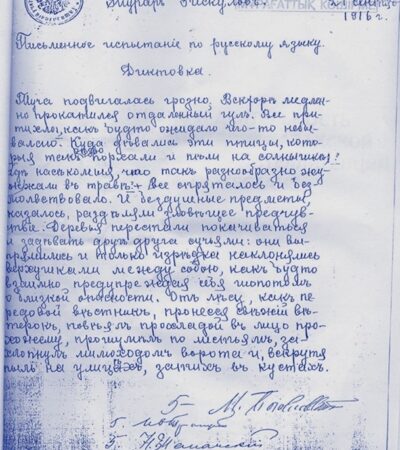 Турарѣ Рыскуловъ.
1916 г.
Письменное испытаніе по русскому языку.
Диктовка.
Туча подвигалась грозно. Вскорѣ медлен-
но прокатился отдаленный гулъ. Все при-
тихло, какъ будто ожидало чего-то небы-
валаго. Куда дѣвались эти птицы, кото-
рыя такъ рѣзво порхали и пѣли на солнышкѣ?
Гдѣ насѣкомыя, что такъ разнообразно жуж-
жали въ травѣ? Все спряталось и без-
молвствовало. И бездушные предметы,
казалось, раздѣляли зловѣщее предчув-
ствіе. Деревья перестали покачиваться
и задѣвать другъ друга сучьями: они вы-
прямились и только изрѣдка наклонялись
верхушками между собою, какъ будто
взаимно предупреждая себя шопотомъ
о близкой опасности. Отъ лѣсу, какъ пе-
редовой вѣстникъ, пронесся свѣжій вѣ-
терокъ, повѣялъ прохладой въ лицо про-
хожему, прошумѣлъ по листьямъ, за-
хлопнулъ мимоходомъ ворота и, вскрутя
пыль на улицѣ, затихъ въ кустахъ.
5-
5
5.